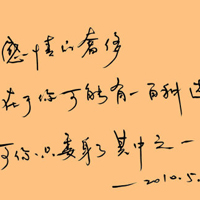 感情的奢侈
在于你可能有一百种选
可你只委身了其中之一
—2010.5.